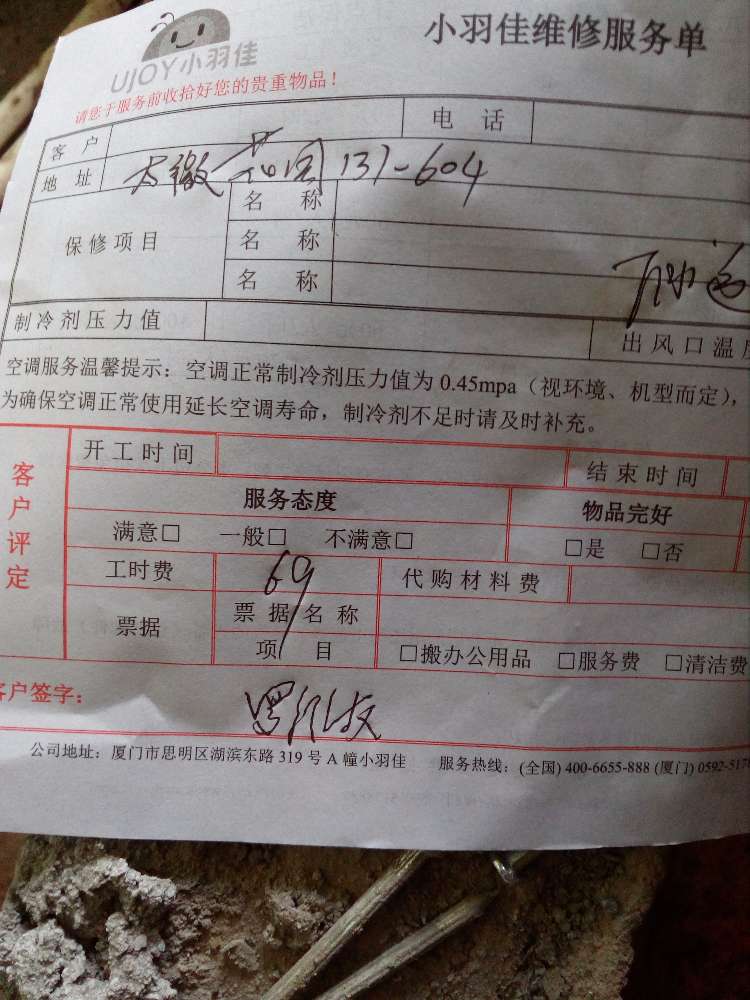 小羽佳维修服务单
UJOY小羽佳
请您于服务前收拾好您的贵重物品！
客 户 电 话
地 址 花园 137-604
保修项目 名 称
名 称
名 称
制冷剂压力值 出风口温
空调服务温馨提示：空调正常制冷剂压力值为 0.45mpa（视环境、机型而定），
为确保空调正常使用延长空调寿命，制冷剂不足时请及时补充。
客户评定
开工时间 结束时间
服务态度 物品完好
满意□ 一般□ 不满意□ □是 □否
工时费 69 代购材料费
票据 票据名称
项 目 □搬办公用品 □服务费 □清洁费
客户签字：
公司地址：厦门市思明区湖滨东路 319 号 A 幢小羽佳 服务热线：(全国) 400-6655-888 (厦门) 0592-517